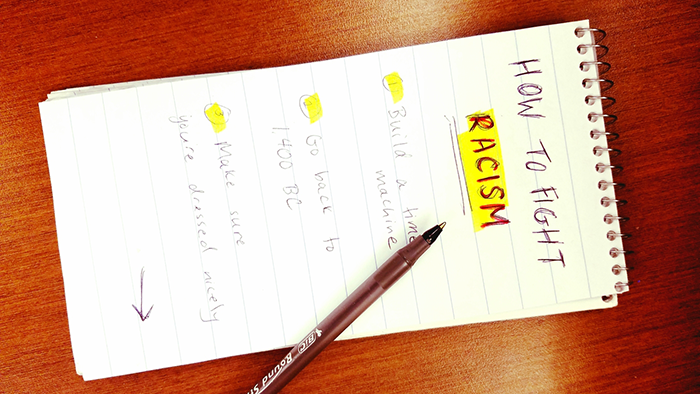 HOW TO FIGHT
RACISM
① Build a time
machine
② Go back to
1,400 BC
③ Make sure
you're dressed nicely
BIC Round